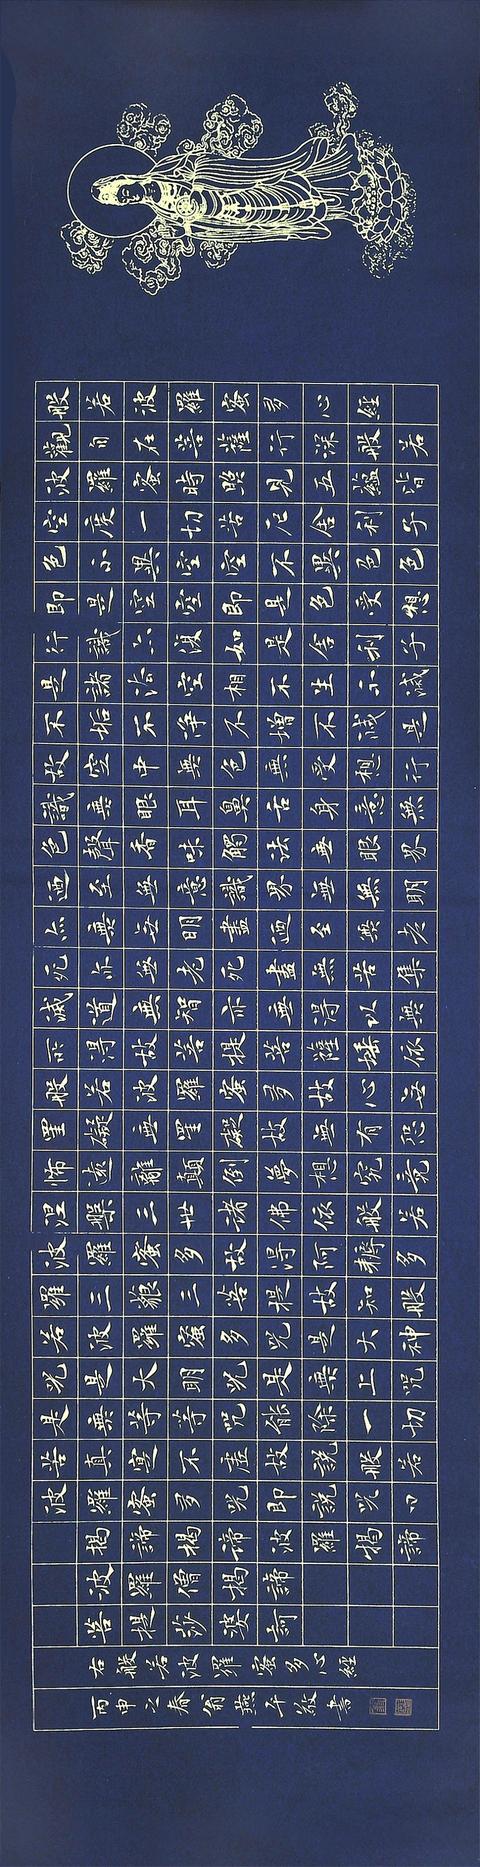 般若波羅蜜多心經
觀自在菩薩行深般若
波羅蜜時照見五蘊皆
空度一切苦厄舍利子
色不異空空不異色色
即是空空即是色受想
行識亦復如是舍利子
是諸法空相不生不滅
不垢不淨不增不減是
故空中無色無受想行
識無眼耳鼻舌身意無
色聲香味觸法無眼界
迺至無意識界無無明
亦無無明盡迺至無老
死亦無老死盡無苦集
滅道無智亦無得以無
所得故菩提菩薩埵依
般若波羅蜜多故心無
罣礙無罣礙故無有恐
怖遠離顛倒夢想究竟
涅槃三世諸佛依般若
波羅蜜多故得阿耨多
羅三藐三菩提故知般
若波羅蜜多咒是大神
咒是大明咒是無上咒
是無等等咒能除一切
苦真實不虛故說般若
波羅蜜多咒即說咒曰
揭諦揭諦波羅揭諦
波羅僧揭諦
菩提莎婆訶
右般若波羅蜜多心經
丙申之春翁燕平敬書